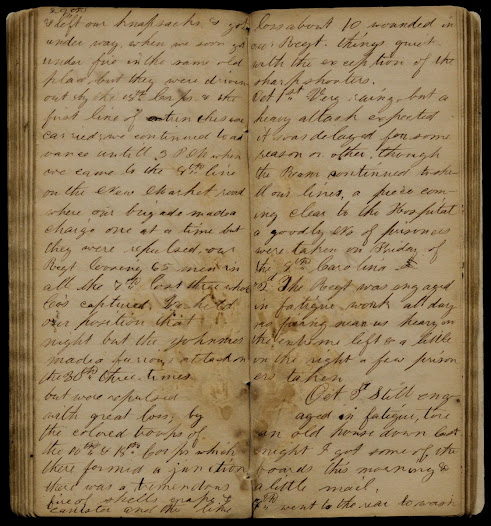 & left our knapsacks & got
under way, when we soon got
under fire in the same old
place, but they were driven
out by the 18th Corps & the
first line of entrenchments
carried, we continued to ad
vance untill 3 P.M. when
we came to the 2nd line
on the New Market road
where our brigade made a
charge one at a time but
they were repulsed, our
Regt loosing 65 men in
all the 7th lost three whole
Co's captured. We held
our position that
night but the Johnnies
made a furious attack on
the 30th three times
but were repulsed
with great loss, by
the colored troops of
the 10th & 18th Corps which
there formed a junction
there was a tremendous
fire of shells grape &
canister and the like
loss about 10 wounded in
our Regt. things quiet
with the exception of the
sharpshooters.
Oct 1st Very rainy, but a
heavy attack expected
it was delayed for some
reason or other, though
the Rams continued to she
ll our lines, a piece com
ing clear to the Hospital
a goodly No of prisoners
were taken on Friday of
the Carolina
2d The Regt was engaged
in fatigue work all day
no firing near us heavy on
the extreme left & a little
on the right a few prison
ers taken
Oct 3d Still eng
aged in fatigue, tore
an old house down last
night I got some of the
boards this morning &
a little mail.
went to the rear to wash